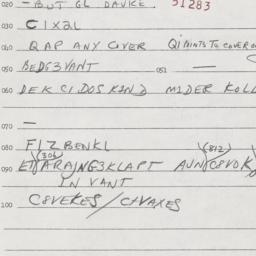 020 – BUT GL DAVKE. 51283
030 C1X2L
040 QAP ANY COVER QI POINTS TO COVER O
050 BEDG3VANT 051 —
060 DEK CIDOS KIND MIDER KOLL
070 —
080 FIZBENKL
(306) (812)
090 ET ARAJNG3KLAPT AUN C8VOK
IN VANT
100 C8VEKES / CHVAXES